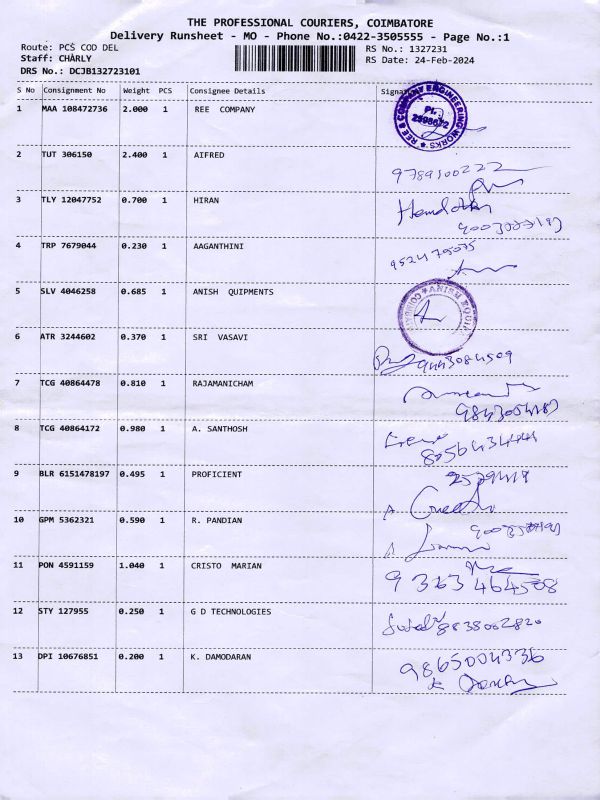 THE PROFESSIONAL COURIERS, COIMBATORE
Delivery Runsheet - MO - Phone No.:0422-3505555 - Page No.:1
Route: PCS COD DEL
RS No.: 1327231
Staff: CHARLY
RS Date: 24-Feb-2024
DRS No.: DCJB132723101
S No Consignment No Weight PCS Consignee Details Signat
1 MAA 108472736 2.000 1 REE COMPANY
REE & COMPANY ENGINEERING WORKS
2 TUT 306150 2.400 1 AIFRED
9789100222
3 TLY 12047752 0.700 1 HIRAN
4 TRP 7679044 0.230 1 AAGANTHINI
9524795075
5 SLV 4046258 0.685 1 ANISH QUIPMENTS
6 ATR 3244602 0.370 1 SRI VASAVI
9443084509
7 TCG 40864478 0.810 1 RAJAMANICHAM
8 TCG 40864172 0.980 1 A. SANTHOSH
9 BLR 6151478197 0.495 1 PROFICIENT
10 GPM 5362321 0.590 1 R. PANDIAN
11 PON 4591159 1.040 1 CRISTO MARIAN
9363464508
12 STY 127955 0.250 1 G D TECHNOLOGIES
8838062820
13 DPI 10676851 0.200 1 K. DAMODARAN
9865004336